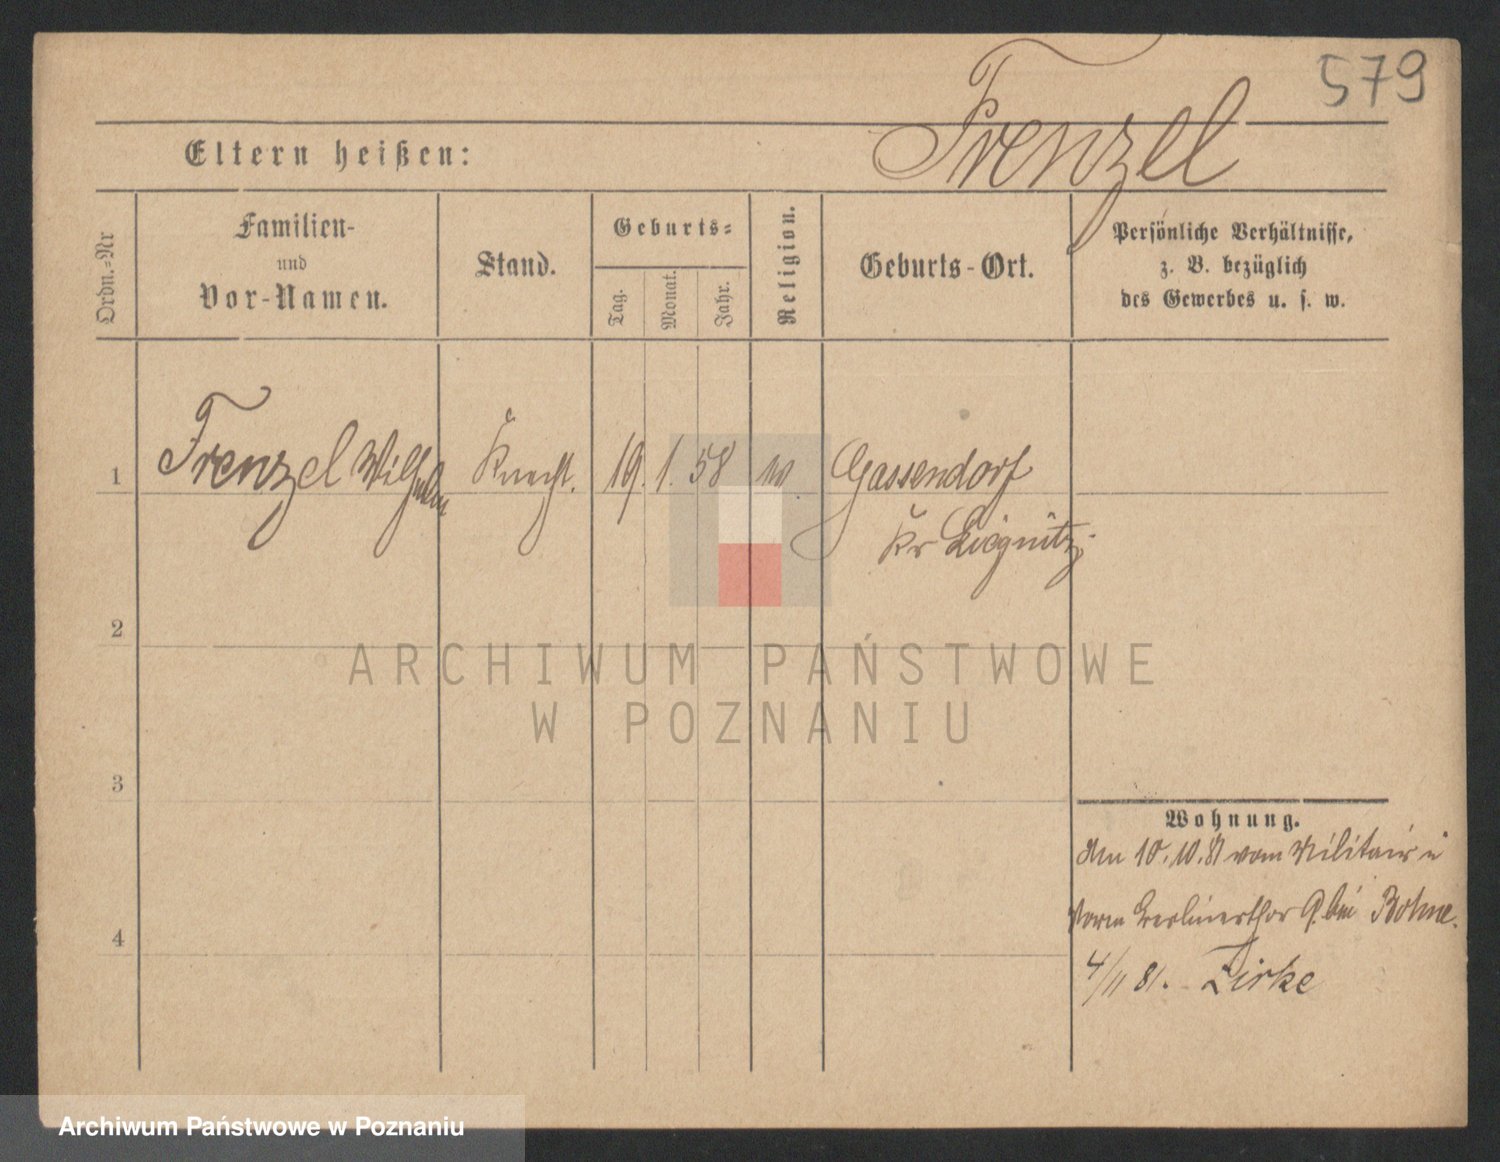 579
Frenzel
Eltern heißen:
Ordn.-Nr
Familien-
und
Vor-Namen.
Stand.
Geburts-
Tag.
Monat.
Jahr.
Religion.
Geburts-Ort.
Persönliche Verhältnisse,
z. B. bezüglich
des Gewerbes u. s. w.
1 Frenzel Wilhelm Knecht. 19. 1. 58 Gassendorf
Kr Liegnitz.
2
3
4
Wohnung.
Am 10.10.81 vom Militair
Vorm Berlinerthor 9. bei Bohne.
4/11 81. Zirke
ARCHIWUM PAŃSTWOWE
W POZNANIU
Archiwum Państwowe w Poznaniu